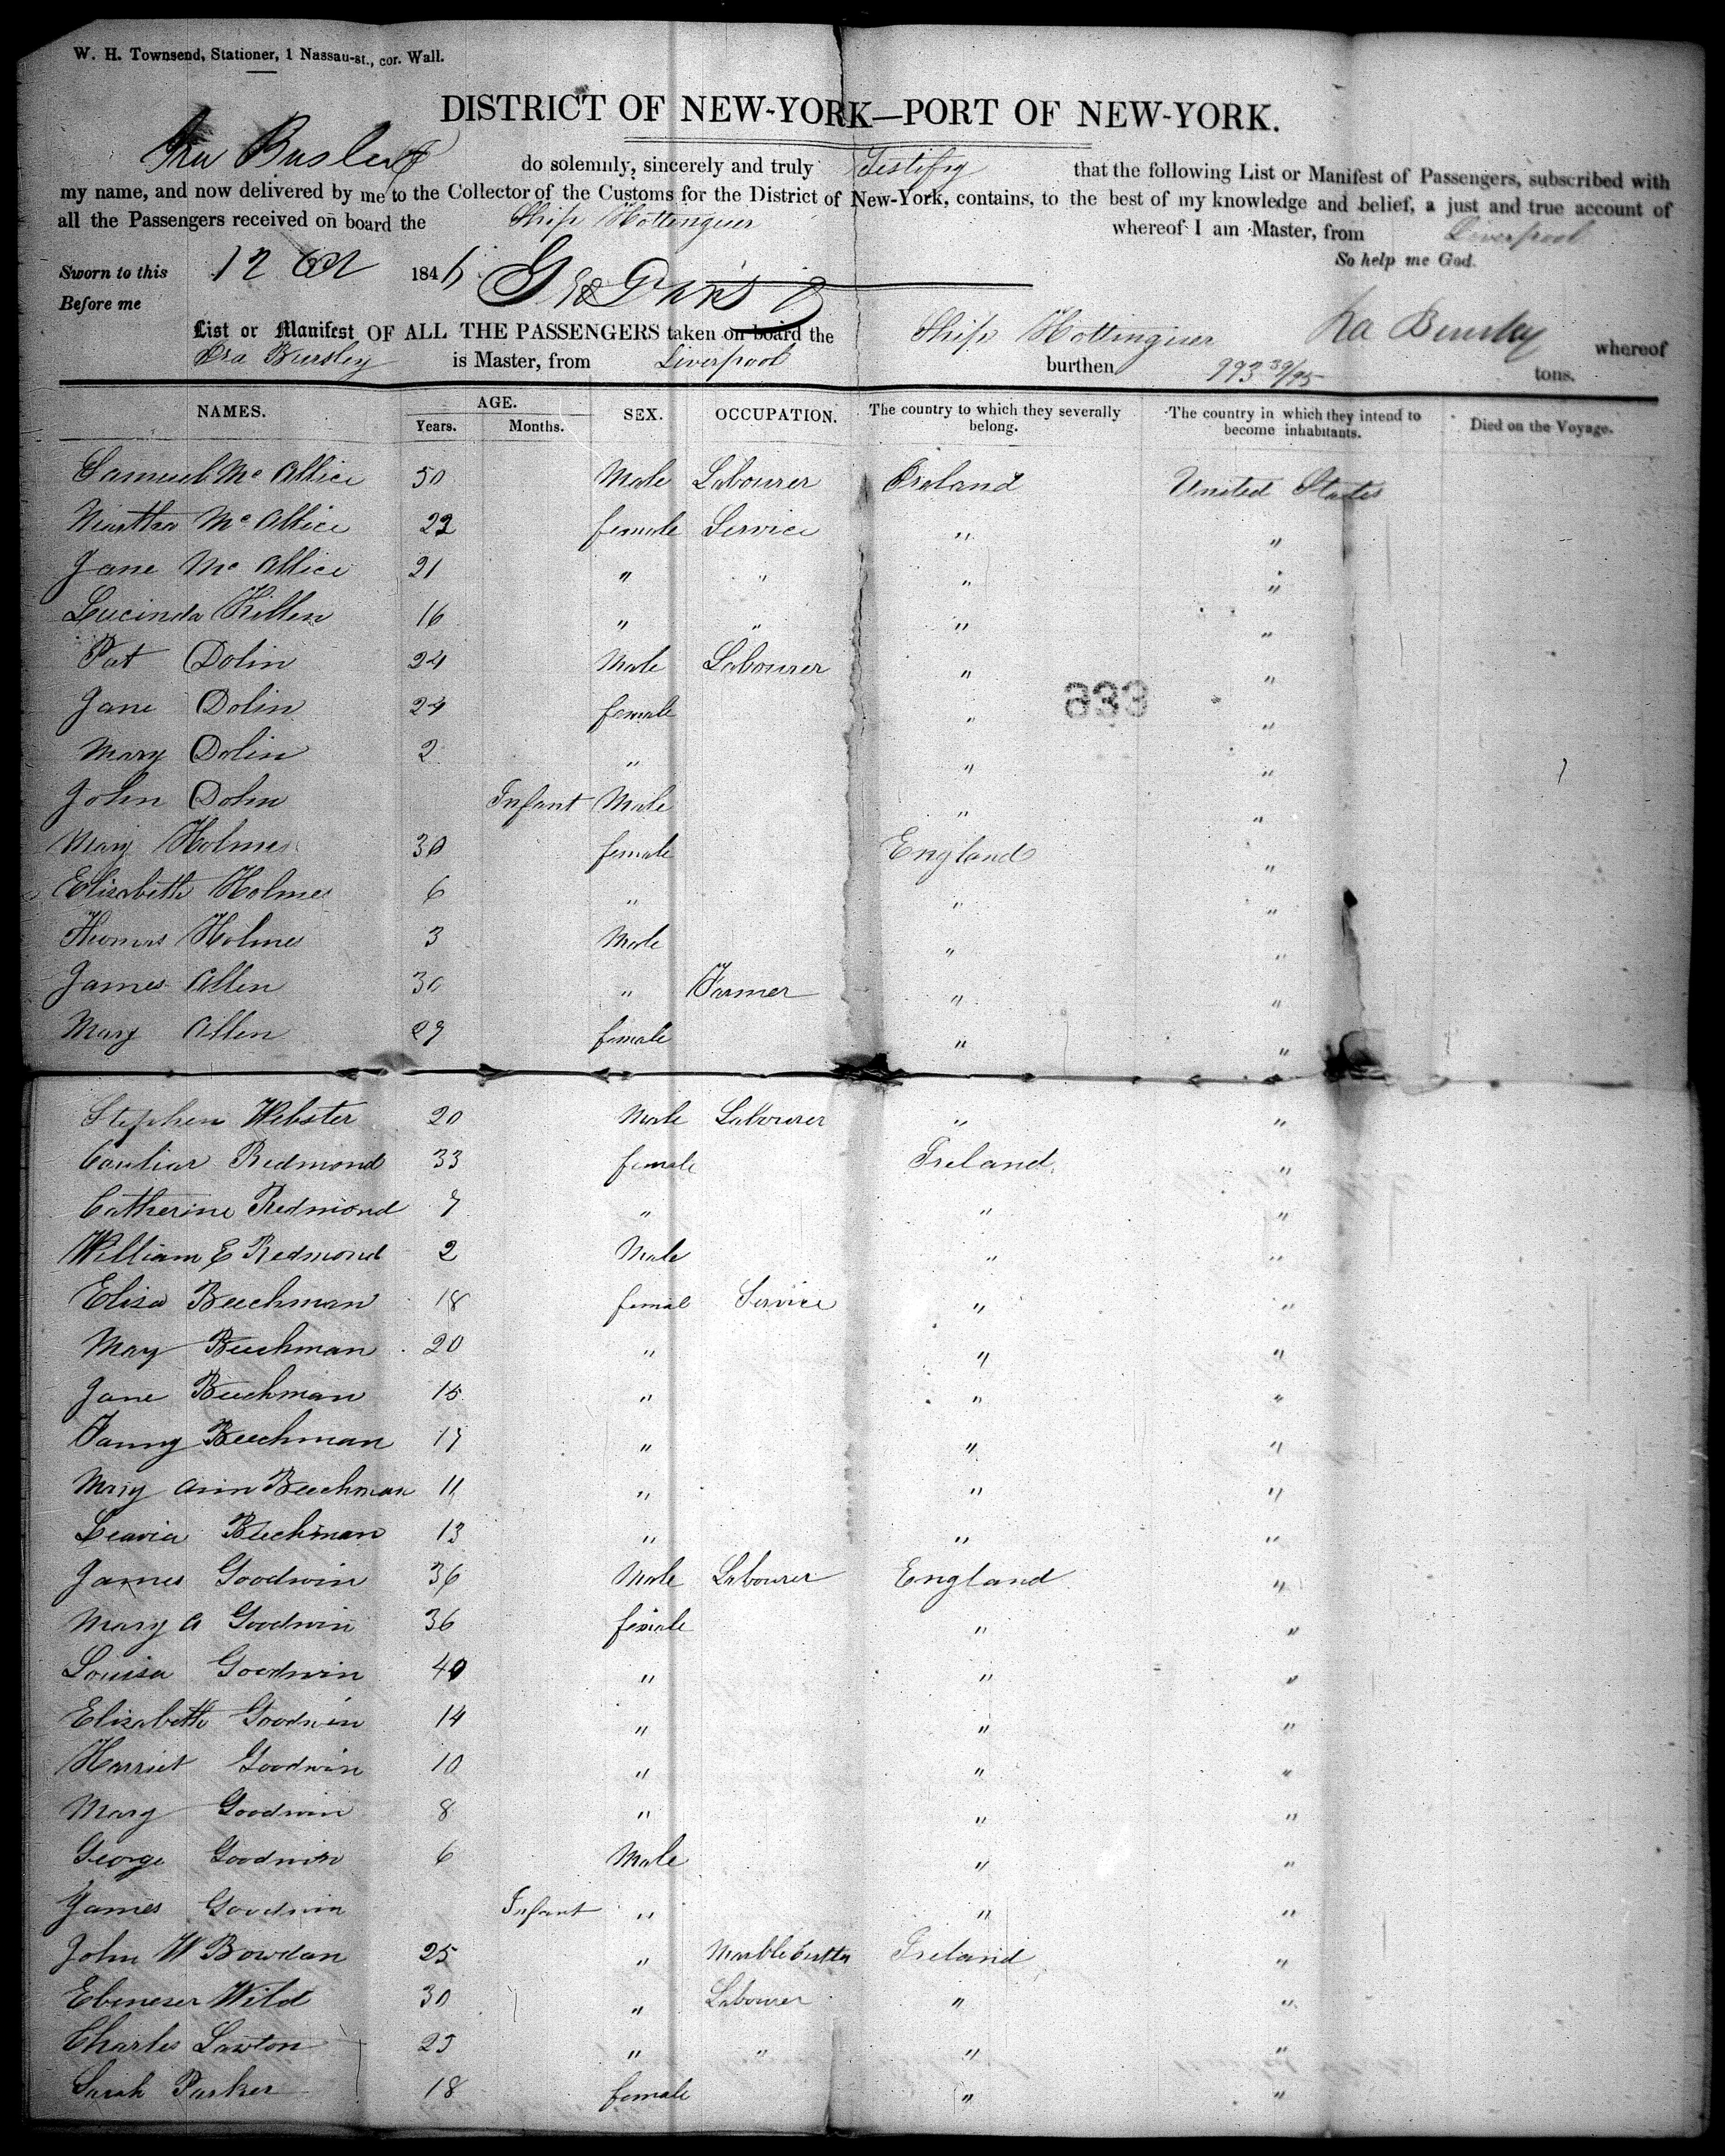 W. H. Townsend, Stationer, 1 Nassau-st., cor. Wall.
DISTRICT OF NEW-YORK—PORT OF NEW-YORK.
Ira Bursley do solemnly, sincerely and truly Testify that the following List or Manifest of Passengers, subscribed with
my name, and now delivered by me to the Collector of the Customs for the District of New-York, contains, to the best of my knowledge and belief, a just and true account of
all the Passengers received on board the Ship Hottinguer whereof I am Master, from Liverpool
So help me God.
Sworn to this 12 Oct 1846
Before me
Ira Bursley
List or Manifest OF ALL THE PASSENGERS taken on board the Ship Hottinguer whereof
Ira Bursley is Master, from Liverpool burthen 993 39/95 tons.
NAMES. AGE. Years. Months. SEX. OCCUPATION. The country to which they severally belong. The country in which they intend to become inhabitants. Died on the Voyage.
Samuel Mc Allice 50 Male Labourer Ireland United States
Martha Mc Allice 22 female Service " "
Jane Mc Allice 21 " " " "
Lucinda Killen 16 " " " "
Pat Dolin 24 Male Labourer " "
Jane Dolin 24 female " "
633
Mary Dolin 2 " " "
John Dolin Infant Male " "
Mary Holmes 30 female England "
Elizabeth Holmes 6 " " "
Thomas Holmes 3 Male " "
James Allen 30 " Farmer " "
Mary Allen 27 female " "
Stephen Webster 20 Male Labourer " "
Redmond 33 female Ireland "
Catherine Redmond 7 " " "
William E Redmond 2 Male " "
Eliza Beechman 18 femal Service " "
Mary Beechman 20 " " "
Jane Beechman 15 " " "
Fanny Beechman 17 " " "
Mary Ann Beechman 11 " " "
Leavia Beechman 13 " " "
James Goodwin 36 Male Labourer England "
Mary A Goodwin 36 female " "
Louisa Goodwin 40 " " "
Elizabeth Goodwin 14 " " "
Harriet Goodwin 10 " " "
Mary Goodwin 8 " " "
George Goodwin 6 Male " "
James Goodwin Infant " " "
John W Bowdan 25 " Marble Cutter Ireland "
Ebenezer Wild 30 " Labourer " "
Charles Laxton 23 " " " "
Sarah Parker 18 female " "